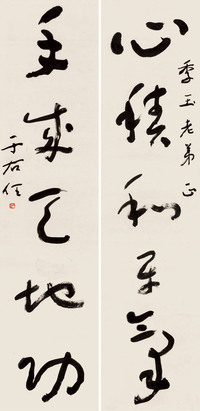 季玉老弟正
心積和平氣
手成天地功
于右任